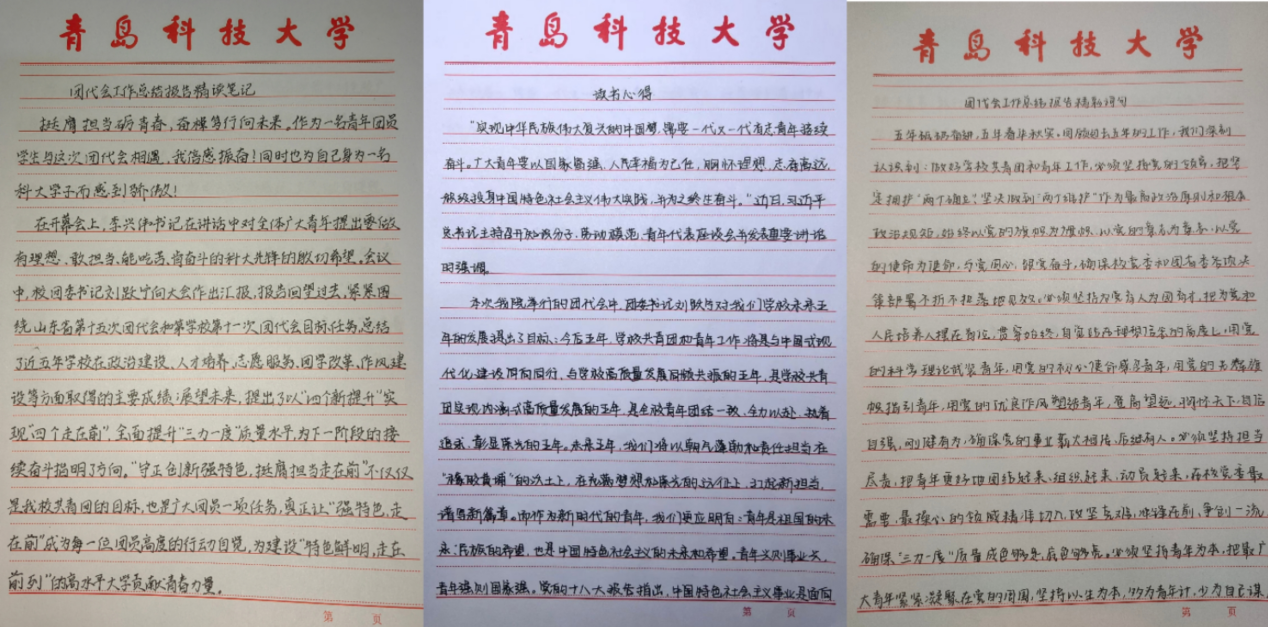 青岛科技大学
团代会工作总结报告精读笔记
挺膺担当砺青春，奋楫笃行向未来。作为一名青年团员
学生与这次团代会相遇，我倍感振奋！同时也为自己身为一名
科大学子而感到骄傲！
在开幕会上，李兴伟书记在讲话中对全体广大青年提出要做
有理想、敢担当、能吃苦、肯奋斗的科大先锋的殷切希望。会议
中，校团委书记刘跃宁向大会作出汇报，报告回望过去，紧紧围
绕山东省第十五次团代会和第学校第十一次团代会目标任务，总结
了近五年学校在政治建设、人才培养、志愿服务、团学改革、作风建
设等方面取得的主要成绩；展望未来，提出了以“四个新提升”实
现“四个走在前”，全面提升“三力一度”质量水平，为下一阶段的接
续奋斗指明了方向。“守正创新强特色，挺膺担当走在前”不仅仅
是我校共青团的目标，也是广大团员一项任务，真正让“强特色，走
在前”成为每一位团员高度的行动自觉，为建设“特色鲜明，走在
前列”的高水平大学贡献青春力量。
第 页
青岛科技大学
读书心得
“实现中华民族伟大复兴的中国梦，需要一代又一代有志青年接续
奋斗。广大青年要以国家富强、人民幸福为己任，胸怀理想、志存高远，
积极投身中国特色社会主义伟大实践，并为之终生奋斗。”近日，习近平
总书记主持召开知识分子、劳动模范、青年代表座谈会并发表重要讲话
时强调。
本次我院举行的团代会中，团委书记刘跃宁对我们学校未来五
年的发展提出了目标：今后五年，学校共青团和青年工作，将是与中国式现
代化建设同向同行、与学校高质量发展同频共振的五年，是学校共青
团实现内涵式高质量发展的五年，是全校青年团结一致、全力以赴、执着
追求、彰显荣光的五年。未来五年，我们将以朝气蓬勃和责任担当在
“橡胶黄埔”的沃土上，在充满梦想和荣光的征程上，扛起新担当，
谱写新篇章。而作为新时代的青年，我们更应明白：青年是祖国的未
来；民族的希望，也是中国特色社会主义的未来和希望，青年兴则事业兴，
青年强则国家强。党的十八大报告指出，中国特色社会主义事业是面向
第 页
青岛科技大学
团代会工作总结报告精彩词句
五年砥砺奋进，五年春华秋实。回顾过去五年的工作，我们深刻
认识到：做好学校共青团和青年工作，必须坚持党的领导，把坚
定拥护“两个确立”、坚决做到“两个维护”作为最高政治原则和根本
政治规矩，始终以党的旗帜为旗帜、以党的意志为意志、以党
的使命为使命，与党同心、跟党奋斗，确保校党委和团省委各项决
策部署不折不扣落地见效。必须坚持为党育人为国育才，把为党和
人民培养人摆在首位，贯穿始终，自觉站在理想信念的高度上，用党
的科学理论武装青年，用党的初心使命感召青年，用党的光辉旗
帜指引青年，用党的优良作风塑造青年，登高望远，胸怀天下，自信
自强，刚健有为，确保党的事业薪火相传、后继有人。必须坚持担当
尽责，把青年更好地团结起来、组织起来、动员起来，在校党委最
需要、最操心的领域精准切入，攻坚克难，冲锋在前、争创一流，
确保“三力一度”质量成色够足，底色够亮。必须坚持青年为本，把最广
大青年紧紧凝聚在党的周围，坚持以生为本，多为青年计，少为自己谋，
第 页